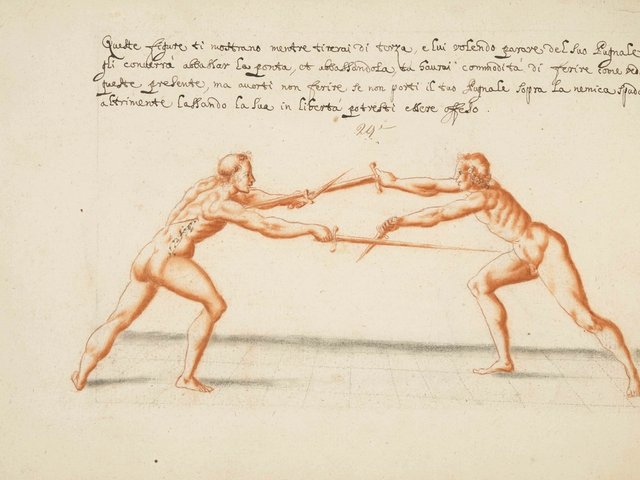 Queste figure ti mostrano mentre tirerai di terza, e lui volendo parare del suo Pugnale
gli converrà abbassar la ponta, et abbassandola tu haurai commodità di ferire come ved
queste presente, ma averti non ferire se non porti il tuo Pugnale sopra la nemica spada
altrimente lassando la sua in libertà potresti essere offeso.
29